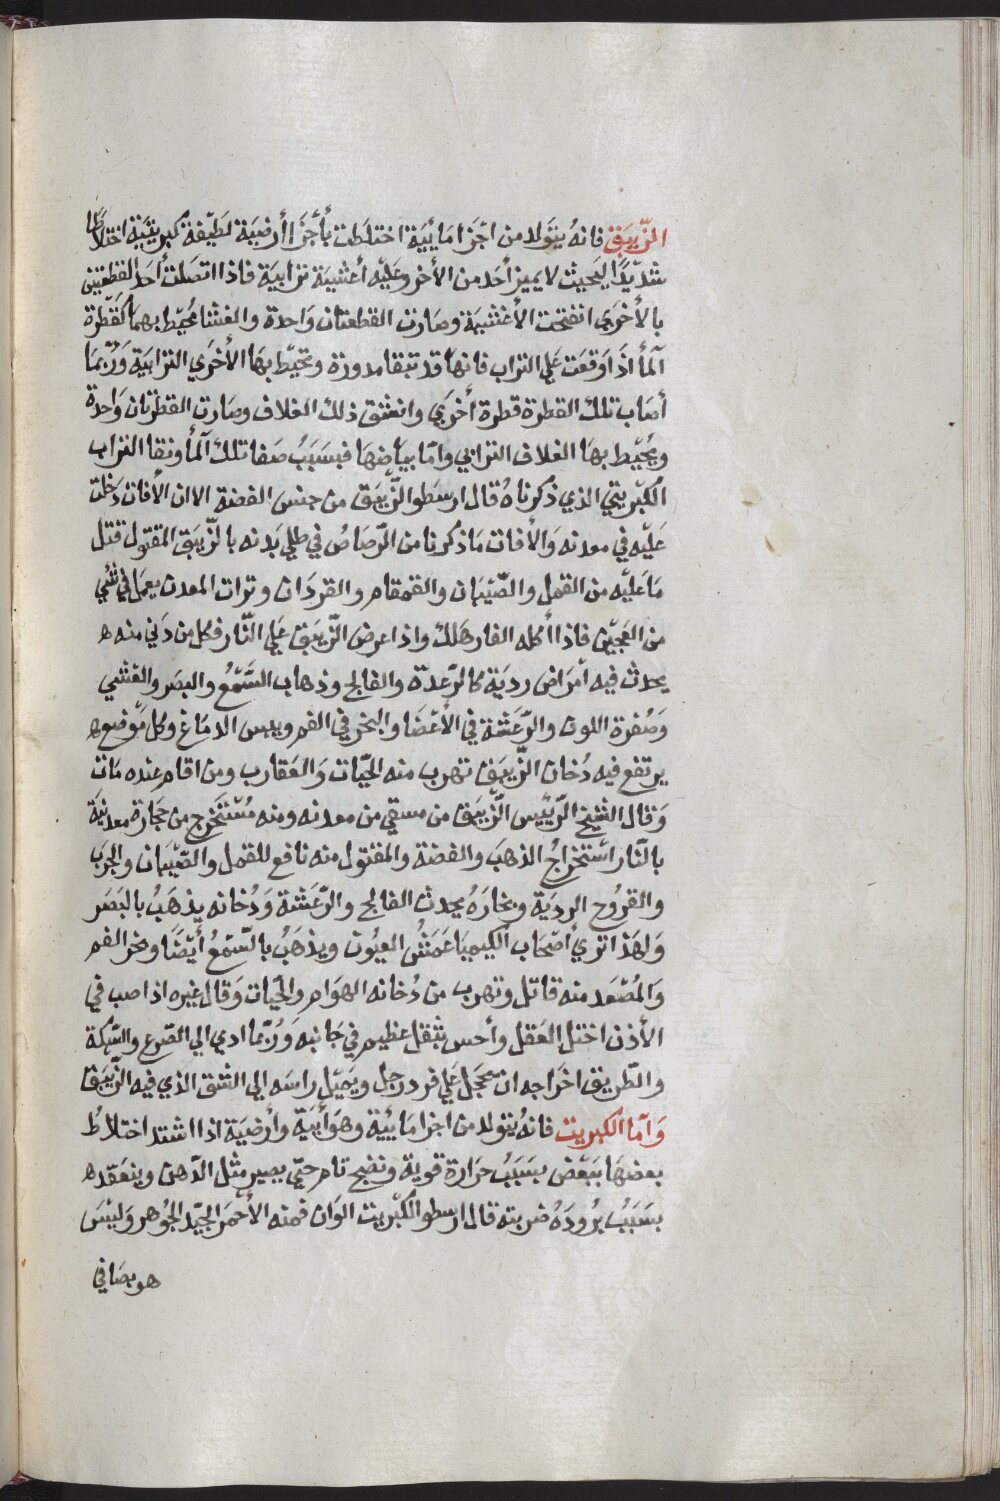 الزّيبَق فانهُ يتَولد من اجّزَا مَا ئيَة اختلَطت بأجّزَا أرضيَة لطيّفة كبريتيَة اختلَاطًا
شديّدًا بَحيث لا يميز أحَد من الأخر وعَليّه أغشيَة ترابيَة فاذا اتصَلت أحَد القطعتين
بالأخرَى انفتحت الأغشيَة وصَارت القطعتان وَاحدة والغشا مُحيّط بهمَا كقَطرة
آلمأ اذَ اوَقعَت عَلي التراب فانهَا قد تبقا مدورة وتحيّط بهَا الأخرَي الترابيَة وَرُبّمَا
أصَاب تلك القطرة قطرة أخرَي وانشق ذلك الغلاف وصَارت القطرتان وَاحدة
ويُحيّط بهَا الغلاف الترابي وامّا بيَاضهَا فبسَبَبُ صَفا تلك آلمأ ونقا التراب
الكبّريتي الذي ذكرناهُ قال ارسَطو الزّيبَق من جنس الفضة الا ان الأفات دَخلت
عَليّه في معدنه وَالأفات مَا ذكرنا من الرّصَاصُ في طلي بَدنه بالزّيبَق المقتول قتل
مَا عَليّه من القمل والصّيّبان والقمقام والقردَان وترات المعدن يعمَل في شئي
من العَجيّن فاذا أكله الفار هَلك واذا عرض الزّيبَق عَلي النّار فكل من دَني منه ه
يحدث فيه أمرَاض رديَة كالرّعدة والفالج وذهاب السّمّعُ والبصَر والغشي
وَصُفرة اللون والرّعَشة في الأعّضَا والبخر في الفم ويبس الدمَاغ وكل مَوّضع ه
يرتفع فيه دُخان الزّيبَق تهرب منه الحيّات وَالعَقارب ومن اقام عنده مَات
وَقال الشيّخ الرّييّس الزّيبَق من مسقي من معدنه ومنه مُسّتخرج من حَجَارة معدنيَة
بالنّار استخراجُ الذهبَ والفضة والمقتول منه نافع للقمل والصّيّبَان والجرَب
والقرُوح الرديَة وبخارَهُ يحدث الفالج والرّعَشة وَدُخانه يذهَبُ بالبَصَر
وَلهَذا تريُ أصّحَاب الكيميَا عَمَشُ العيُون ويذهَبُ بالسّمْعُ أيّضًا وبخر الفم
وَالمُصّعَد منه قاتل وتهرب من دُخانه الهوَام والحَيات وَقال غيره اذا صب في
الأذن اختل العَقل وأحس بثقل عظيم في جَانبه وَرُبّما ادي الي الصّرع والسّكتة
والطّريق اخرَاجه ان يحَجل عَلي فرد رجل ويَميّل راسَه الي الشق الذي فيه الزّيبَق
وَآمّا الكبريت فانهُ يتولد من اجزا مَا ئيّة وهوَأيَة وأرضيَة اذا اشتد اختلَاطُ
بعضهَا ببَعّض بسَبَبُ حرَارة قوية ونضج تام حَتي يصير مثل الدّهن وينعَقد ه
بسَبَبُ بُرُودَهُ ضربته قال ارسطو الكّبريت الوَان فمنه الأحّمَر الجيّد الجُوهر وَليّسَ
هو بصَافي